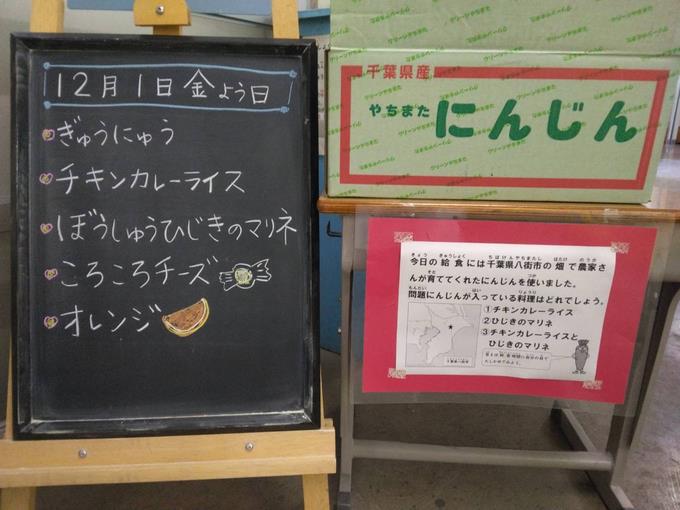 12月1日金よう日
ぎゅうにゅう
チキンカレーライス
ぼうしゅうひじきのマリネ
ころころチーズ
オレンジ
千葉県産
やちまた にんじん
今日の給食には千葉県八街市の畑で農家さ
んが育ててくれたにんじんを使いました。
問題にんじんが入っている料理はどれでしょう。
①チキンカレーライス
②ひじきのマリネ
③チキンカレーライスと
ひじきのマリネ